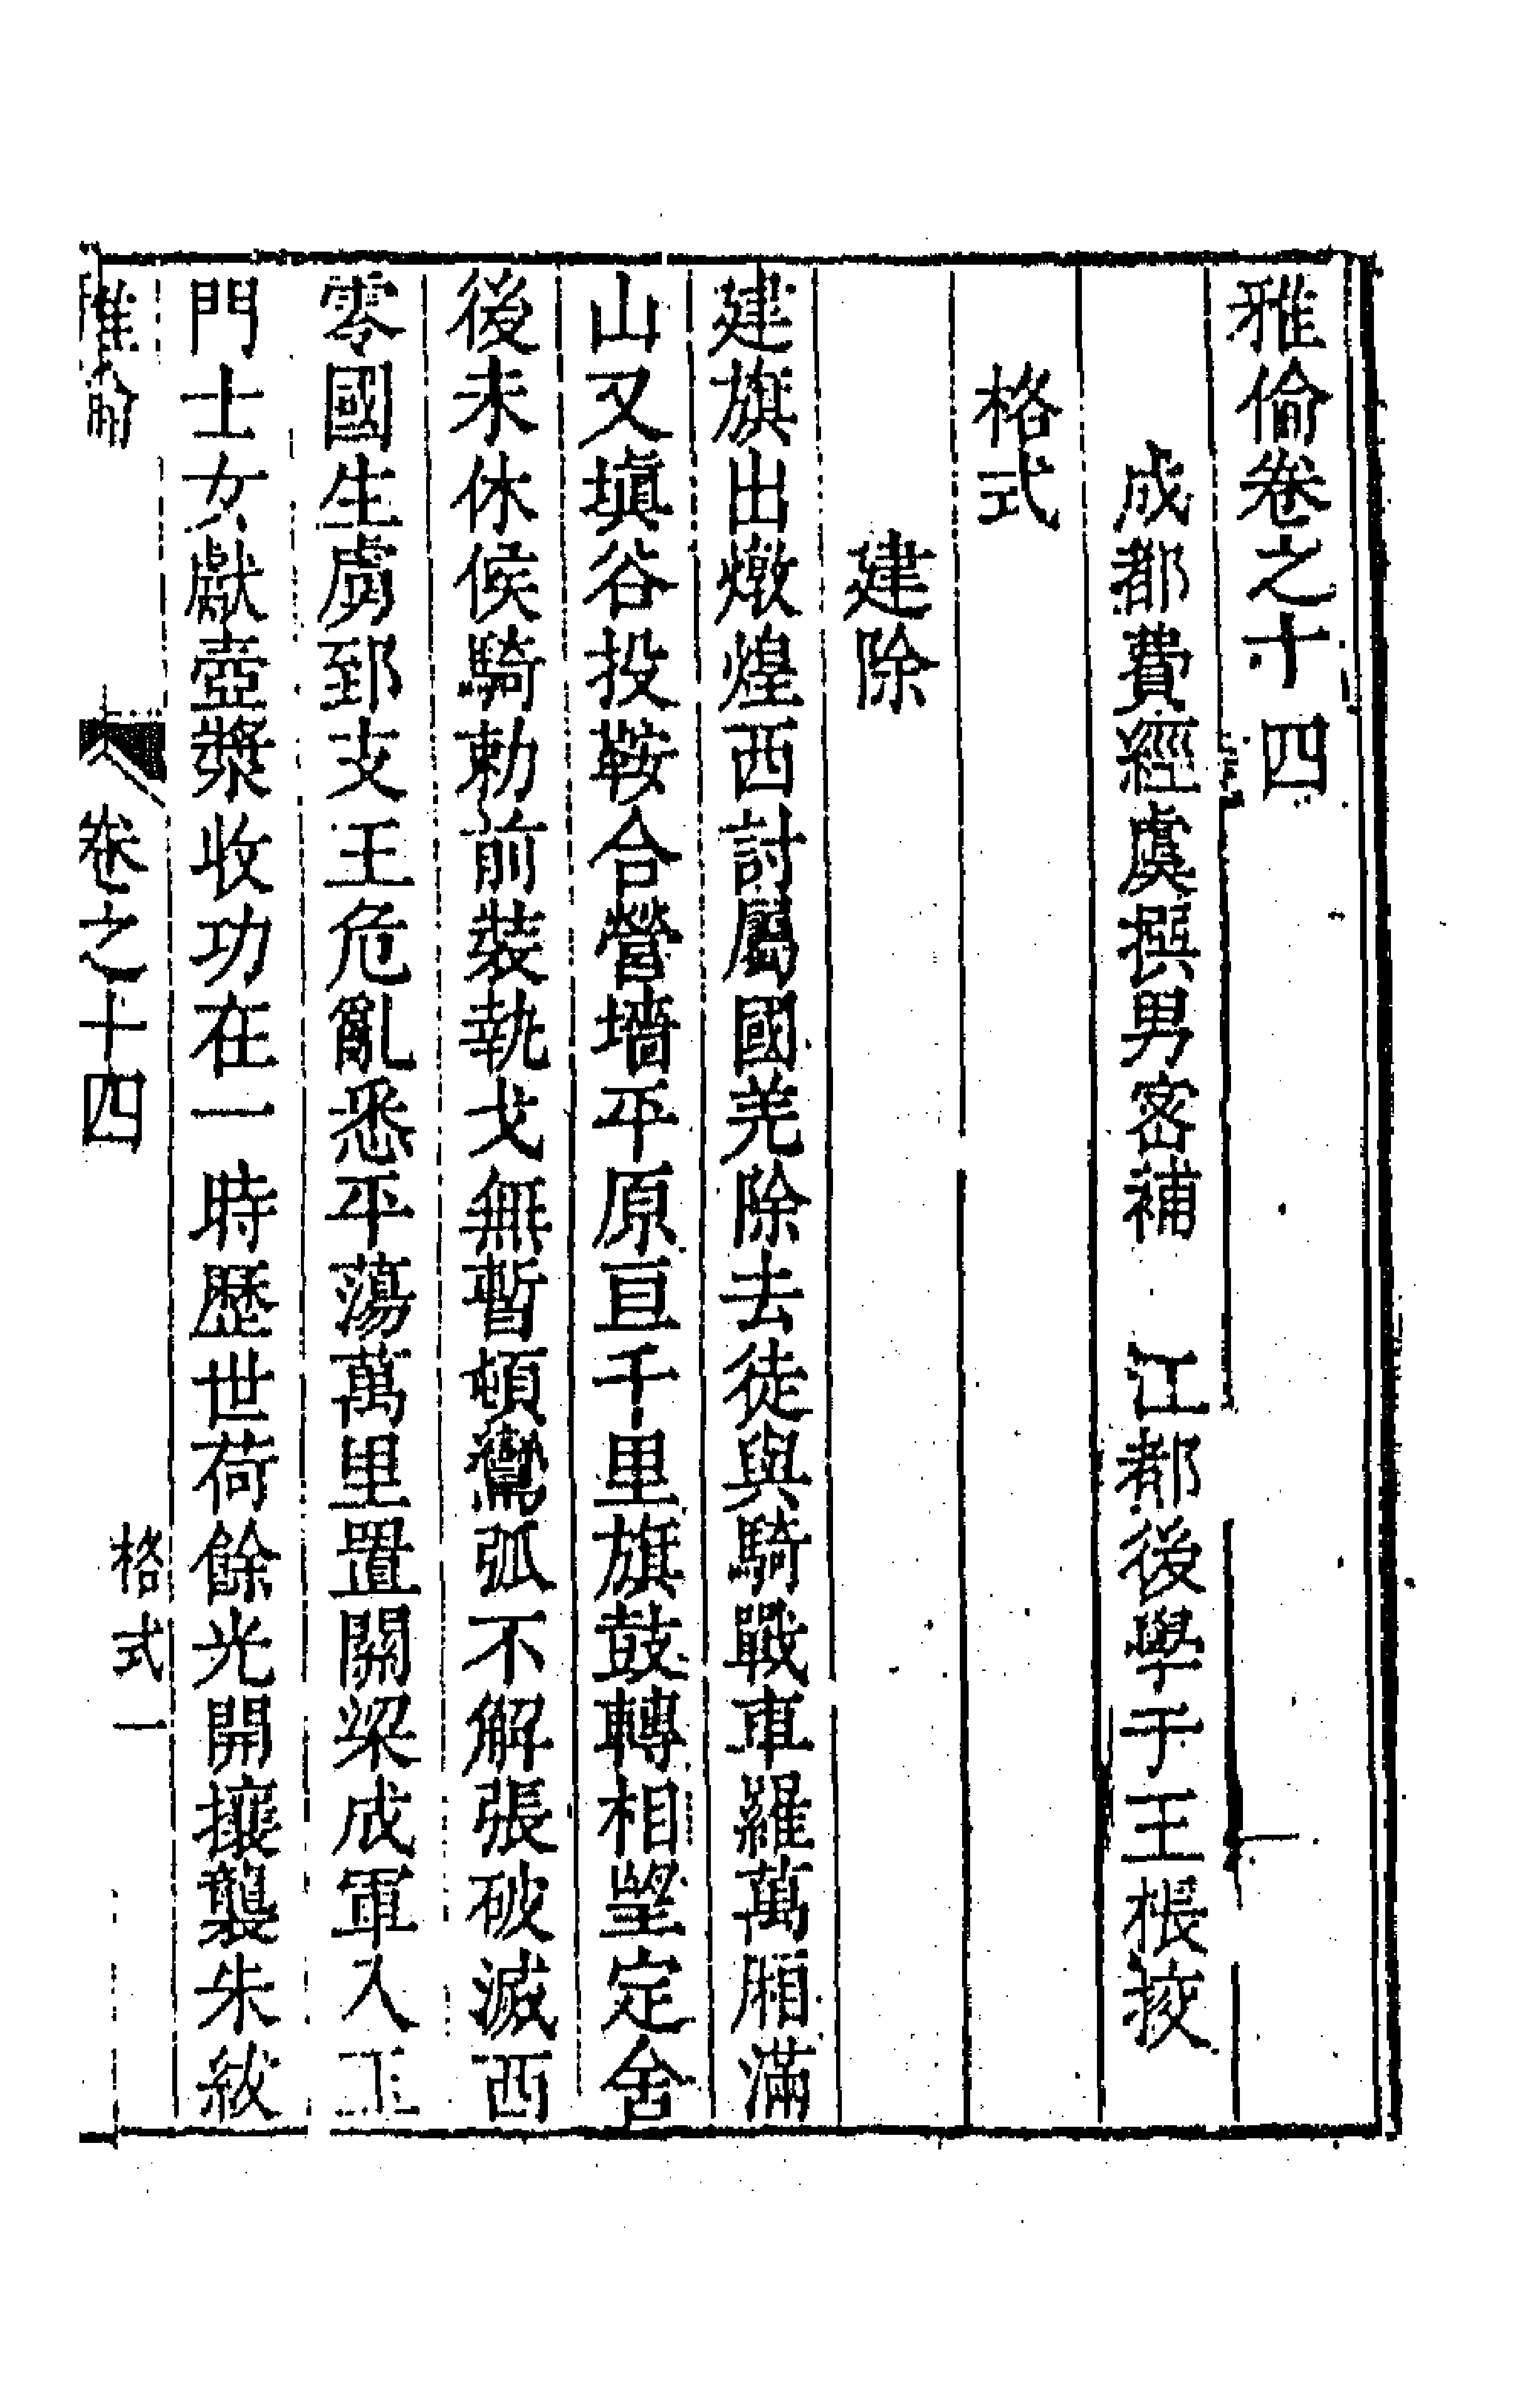 雅倫卷之十四
成都費經虞撰男密補　江都後學于王棖挍
格式
建除
建旗出燉煌西討屬國羌除去徒與騎戰車羅萬厢滿
山又塡谷投鞍合營墻平原亘千里旗鼓轉相望定舍
後未休候騎勅前裝執戈無暫頓彎弧不解張破滅西
零國生虜郅支王危亂悉平蕩萬里置關梁成軍入玉
門士女獻壺漿收功在一時歷世荷餘光開攘襲朱紱
雅倫　卷之十四　格式一